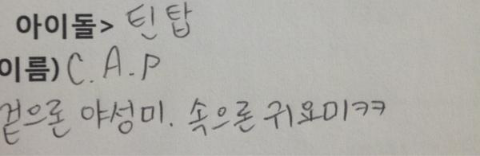 아이돌> 틴탑
이름) C.A.P
겉으론 야성미. 속으론 귀요미ㅋㅋ